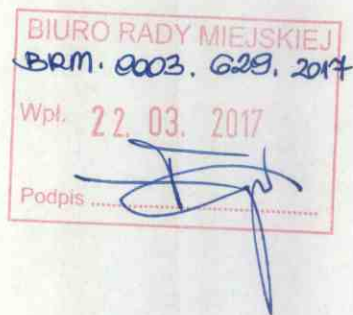 BIURO RADY MIEJSKIEJ
BRM. 0003. 629. 2017
Wpł. 22. 03. 2017
Podpis